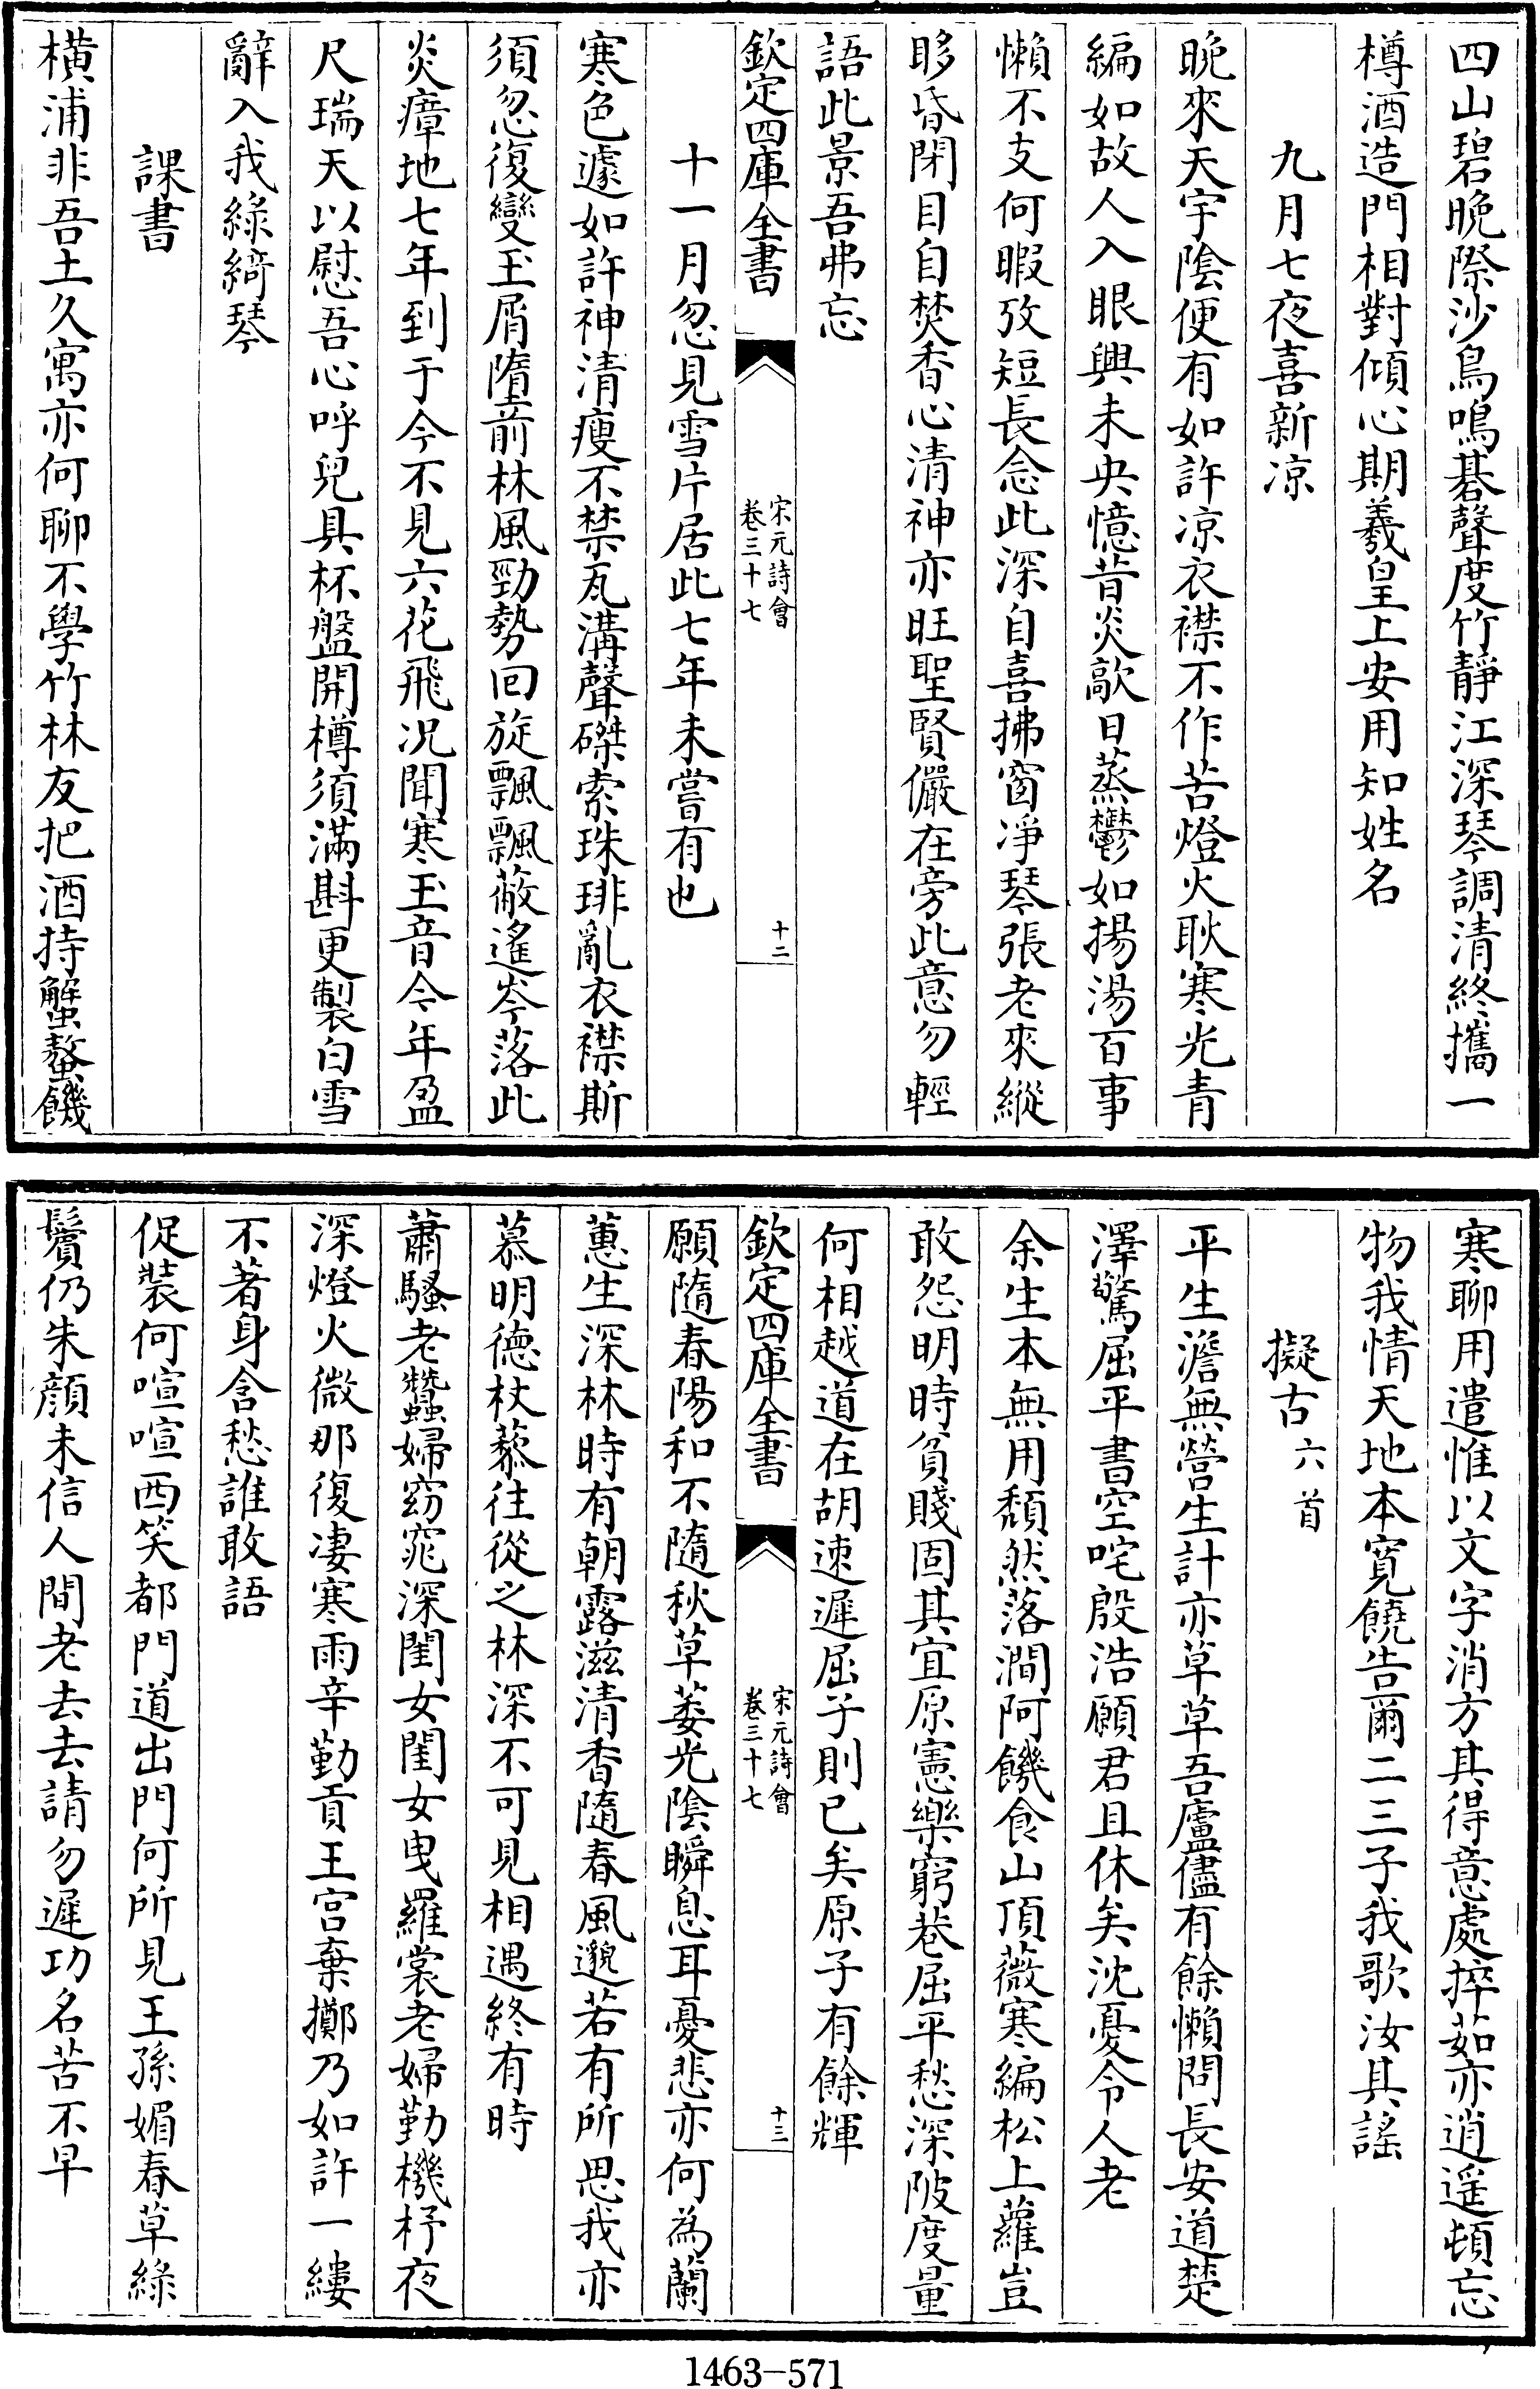 四山碧晚際沙鳥鳴碁聲度竹靜江深琴調清終攜一
樽酒造門相對傾心期羲皇上安用知姓名
九月七夜喜新凉
晚來天宇陰便有如許凉衣襟不作苦燈火耿寒光青
編如故人入眼興未央憶昔炎歊日蒸鬱如揚湯百事
懶不支何暇攷短長念此深自喜拂窗凈琴張老來縱
眵昏閉目自焚香心清神亦旺聖賢儼在旁此意勿輕
語此景吾弗忘
欽定四庫全書
宋元詩會
卷三十七
十二
十一月忽見雪片居此七年未嘗有也
寒色遽如許神清瘦不禁瓦溝聲磔索珠琲亂衣襟斯
須忽復變玉屑墮前林風勁勢回旋飄飄蔽遙岑落此
炎瘴地七年到于今不見六花飛况聞寒玉音今年盈
尺瑞天以慰吾心呼兒具杯盤開樽須滿斟更製白雪
辭入我綠綺琴
課書
橫浦非吾土久寓亦何聊不學竹林友把酒持蟹螯饑
寒聊用遣惟以文字消方其得意處捽茹亦逍遥頓忘
物我情天地本寛饒告爾二三子我歌汝其謠
擬古六首
平生澹無營生計亦草草吾廬儘有餘懶問長安道楚
澤驚屈平書空咤殷浩願君且休矣沈憂令人老
余生本無用頹然落澗阿饑食山頂薇寒編松上蘿豈
敢怨明時貧賤固其宜原憲樂窮巷屈平愁深陂度量
何相越道在胡速遲屈子則已矣原子有餘輝
欽定四庫全書
宋元詩會
卷三十七
十三
願隨春陽和不隨秋草萎光陰瞬息耳憂悲亦何為蘭
蕙生深林時有朝露滋清香隨春風邈若有所思我亦
慕明德杖藜往從之林深不可見相遇終有時
蕭騷老蠶婦窈窕深閨女閨女曳羅裳老婦勤機杼夜
深燈火微那復凄寒雨辛勤貢王宫棄擲乃如許一縷
不著身含愁誰敢語
促裝何喧喧西笑都門道出門何所見王孫媚春草綠
鬢仍朱顔未信人間老去去請勿遲功名苦不早
1463-571